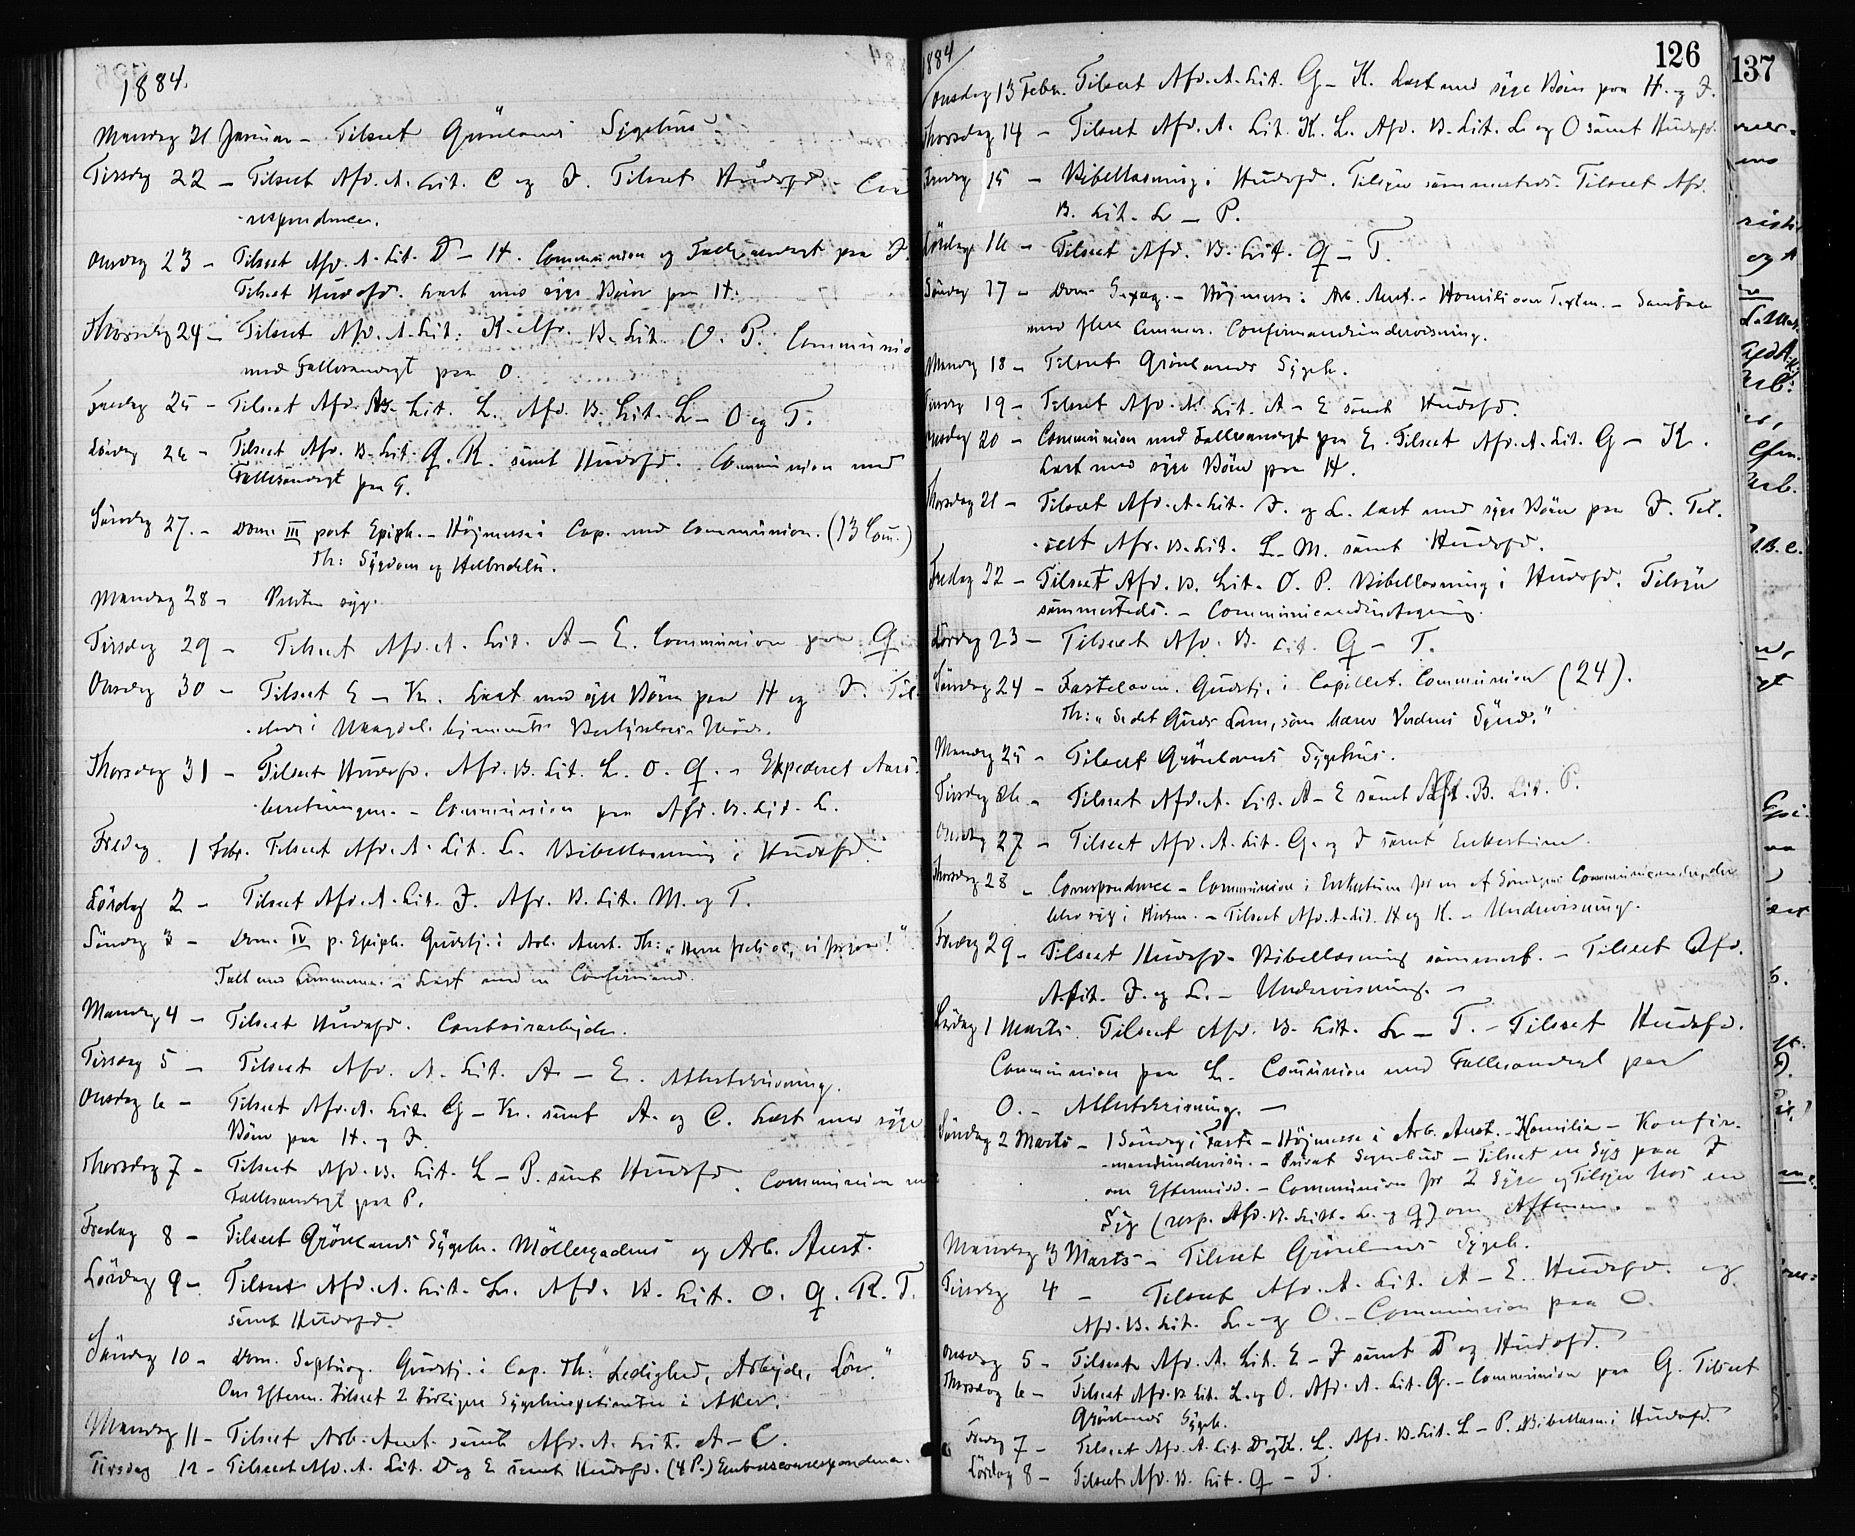 1884.
Mandag 21 Januar – Tilseet Grönlands Sygehus
Tirsdag 22 – Tilseet Afd. A. Lit. C og J. Tilseet Hudafd. Cor
respondence.
Onsdag 23 – Tilseet Afd. A. Lit. D – H. Communion og Fællesandagt paa J.
Tilseet Hudafd. Læst med syge Börn paa H.
Thorsdag 24 – Tilseet Afd. A. Lit. K. Afd. B. Lit. O. P. Communio
med Fællesandagt paa O.
Fredag 25 – Tilseet Afd. A. Lit. L. Afd. B. Lit. L – O og T.
Lördag 26 – Tilseet Afd. B. Lit. Q. R. samt Hudafd. Communion med
Fællesandagt paa G.
Söndag 27. – Dom. III post Epiph. – Höjmesse i Cap. med Communion. (13 Com.)
Th: Sygdom og Helbredelse.
Mandag 28 – Præsten syg.
Tirsdag 29 – Tilseet Afd. A. Lit. A – E. Communion paa Q
Onsdag 30 – Tilseet E – K. Læst med syge Börn paa H og J. Til
stede i Bestyrelses-Möde.
Thorsdag 31 – Tilseet Hudafd. Afd. B. Lit. L. O. Q. – Expederet Aars
beretningen. – Communion paa Afd. B. Lit. L.
Fredag 1 Febr. Tilseet Afd. A. Lit. L. Bibellæsning i Hudafd.
Lördag 2 – Tilseet Afd. A. Lit. J. Afd. B. Lit. M. og T.
Söndag 3 – Dom. IV p. Epiph. Gudstj. i Arb. Anst. Th: „Herre frels os, vi forgaa!"
Talt med – Læst med en Confirmand.
Mandag 4 – Tilseet Hudafd. Contoirarbejde.
Tirsdag 5 – Tilseet Afd. A. Lit. A – E. Attestskrivning.
Onsdag 6 – Tilseet Afd. A. Lit. G – K. samt A. og C. Læst med syge
Börn paa H. og J.
Thorsdag 7 – Tilseet Afd. B. Lit. L – P. samt Hudafd. Communion med
Fællesandagt paa P.
Fredag 8 – Tilseet Grönlands Sygeh. Möllergadens og Arb. Anst.
Lördag 9 – Tilseet Afd. A. Lit. L. Afd. B. Lit. O. Q. R. T.
samt Hudafd.
Söndag 10 – Dom. Septuag. Gudstj. i Cap. Th: "Ledighed, Arbejde, Lön."
Om Efterm. Tilseet 2 tidligere Sygehuspatienter i Aker.
Mandag 11 – Tilseet Arb. Anst. samt Afd. A. Lit. A – C.
Tirsdag 12 – Tilseet Afd. A. Lit. D og E samt Hudafd. (4 P.) Embedscorrespondence.
1884
126
137
Onsdag 13 Febr. Tilseet Afd. A. Lit. G – K. Læst med syge Börn paa H. og J.
Thorsdag 14 – Tilseet Afd. A. Lit. K. L. Afd. B. Lit. L. og O samt Hudafd.
Fredag 15 – Bibellæsning i Hudafd. Tilsyn sammesteds. Tilseet Afd.
B. Lit. L – P.
Lördag 16 – Tilseet Afd. B. Lit. Q – T.
Söndag 17 – Dom. Sexag. – Höjmesse i Arb. Anst. – Homili over Texten. – Samtale
med flere Lemmer. Confirmandundervisning.
Mandag 18 – Tilseet Grönlands Sygeh.
Tirsdag 19 – Tilseet Afd. A. Lit. A – E samt Hudafd.
Onsdag 20 – Communion med Fællesandagt paa E. Tilseet Afd. A. Lit. G – K.
Læst med syge Börn paa H.
Thorsdag 21 – Tilseet Afd. A. Lit. J. og L. læst med syge Börn paa J. Til-
seet Afd. B. Lit. L – M. samt Hudafd.
Fredag 22 – Tilseet Afd. B. Lit. O. P. Bibellæsning i Hudafd. Tilsyn
sammesteds. – Communicantindtegning.
Lördag 23 – Tilseet Afd. B. Lit. Q – T.
Söndag 24 – Fastelavn. Gudstj. i Capellet. Communion (24).
Th: „Se det Guds Lam, som bærer Verdens Synd."
Mandag 25 – Tilseet Grönlands Sygehus.
Tirsdag 26 – Tilseet Afd. A. Lit. A – E samt Afd. B. Lit. P.
Onsdag 27 – Tilseet Afd. A. Lit. G. og J samt Enkestuen.
Thorsdag 28 – Correspondence – Communion i Enkestuen for en af Söndagens Communicanter, der
blev syg i Kirken. – Tilseet Afd. A. Lit. H og K. – Undervisning.
Fredag 29 – Tilseet Hudafd. Bibellæsning sammest. – Tilseet Afd.
A. Lit. J. og L. – Undervisning. –
Lördag 1 Marts. Tilseet Afd. B. Lit. L – T. – Tilseet Hudafd.
Communion paa L. Communion med Fællesandagt paa
O. – Attestskrivning. –
Söndag 2 Marts – 1 Söndag i Faste – Höjmesse i Arb. Anst. – Homilie – Konfir-
mandundervisn. – Privat Sognebud – Tilseet en Syg paa J
om Eftermidd. – Communion for 2 Syge og Tilsyn hos en
Syg (resp. Afd. B. Litt. L. og Q) om Aftenen.
Mandag 3 Marts – Tilseet Grönlands Sygeh.
Tirsdag 4 – Tilseet Afd. A. Lit. A – E. Hudafd. og
Afd. B. Lit. L. og O. – Communion paa O.
Onsdag 5 – Tilseet Afd. A. Lit. E – J samt D og Hudafd.
Thorsdag 6 – Tilseet Afd. B Lit. L. og O. Afd. A. Lit. G. – Communion paa G. Tilseet
Grönlands Sygeh.
Fredag 7 – Tilseet Afd. A. Lit. D og K. L. Afd. B. Lit. L – P. Bibellæsn. i Hudafd.
Lördag 8 – Tilseet Afd. B. Lit. Q – T.